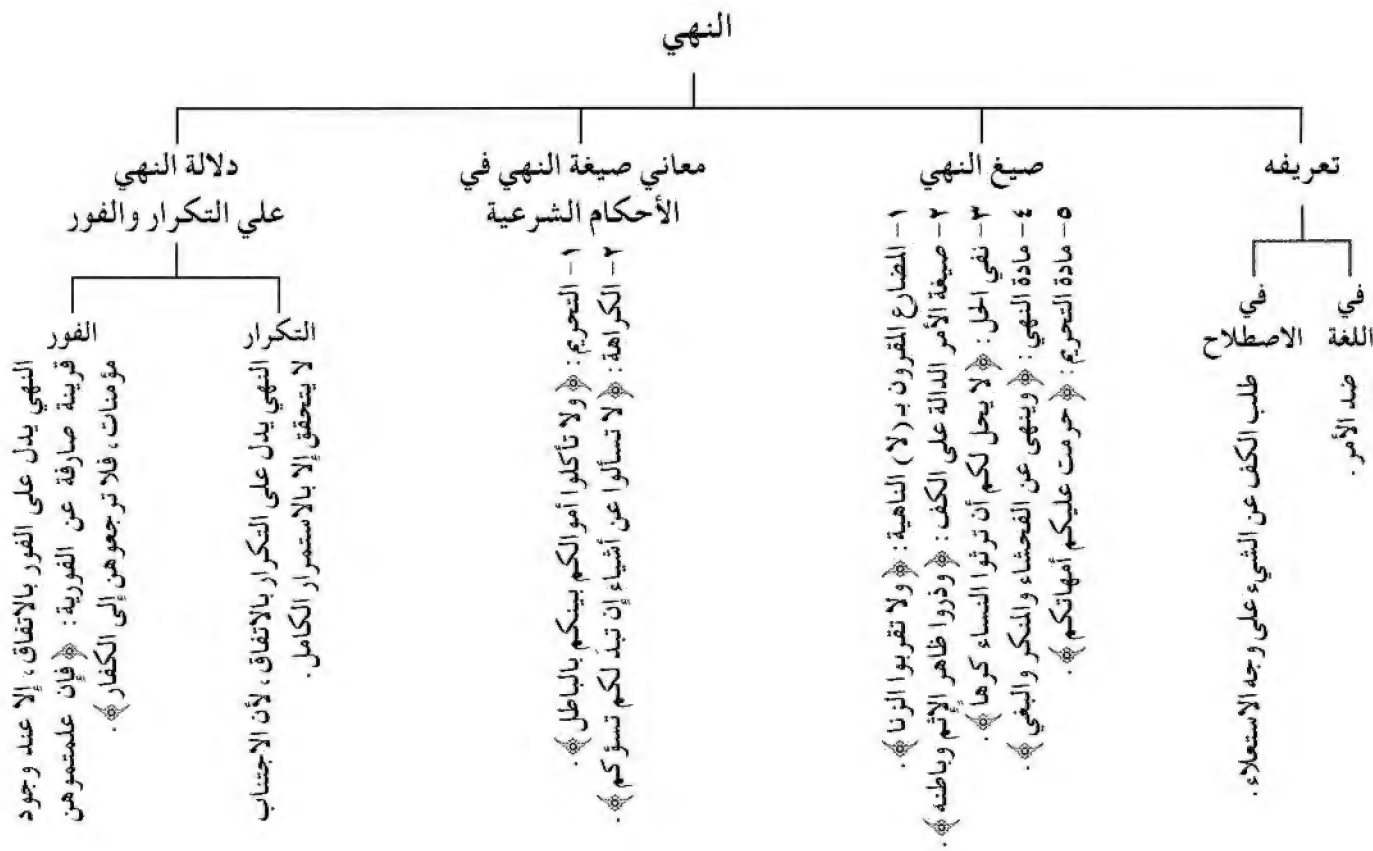 النهي
تعريفه
في
اللغة
ضد الأمر .
في
الاصطلاح
طلب الكف عن الشيء على وجه الاستعلاء .
صيغ النهي
١ – المضارع المقرون بـ (لا) الناهية : ﴿ ولا تقربوا الزنا ﴾ .
٢ – صيغة الأمر الدالة على الكف : ﴿ وذروا ظاهر الإثم وباطنه ﴾ .
٣ – نفي الحل : ﴿ لا يحل لكم أن ترثوا النساء كرها ﴾ .
٤ – مادة النهي : ﴿ وينهى عن الفحشاء والمنكر والبغي ﴾ .
٥ – مادة التحريم : ﴿ حرمت عليكم أمهاتكم ﴾ .
معاني صيغة النهي في
الأحكام الشرعية
١ – التحريم : ﴿ ولا تأكلوا أموالكم بينكم بالباطل ﴾ .
٢ – الكراهة : ﴿ لا تسألوا عن أشياء إن تبدَ لكم تسؤكم ﴾ .
دلالة النهي
علي التكرار والفور
التكرار
النهي يدل على التكرار بالاتفاق ، لأن الاجتناب
لا يتحقق إلا بالاستمرار الكامل .
الفور
النهي يدل على الفور بالاتفاق ، إلا عند وجود
قرينة صارفة عن الفورية : ﴿ فإن علمتموهن
مؤمنات ، فلا ترجعوهن إلى الكفار ﴾ .